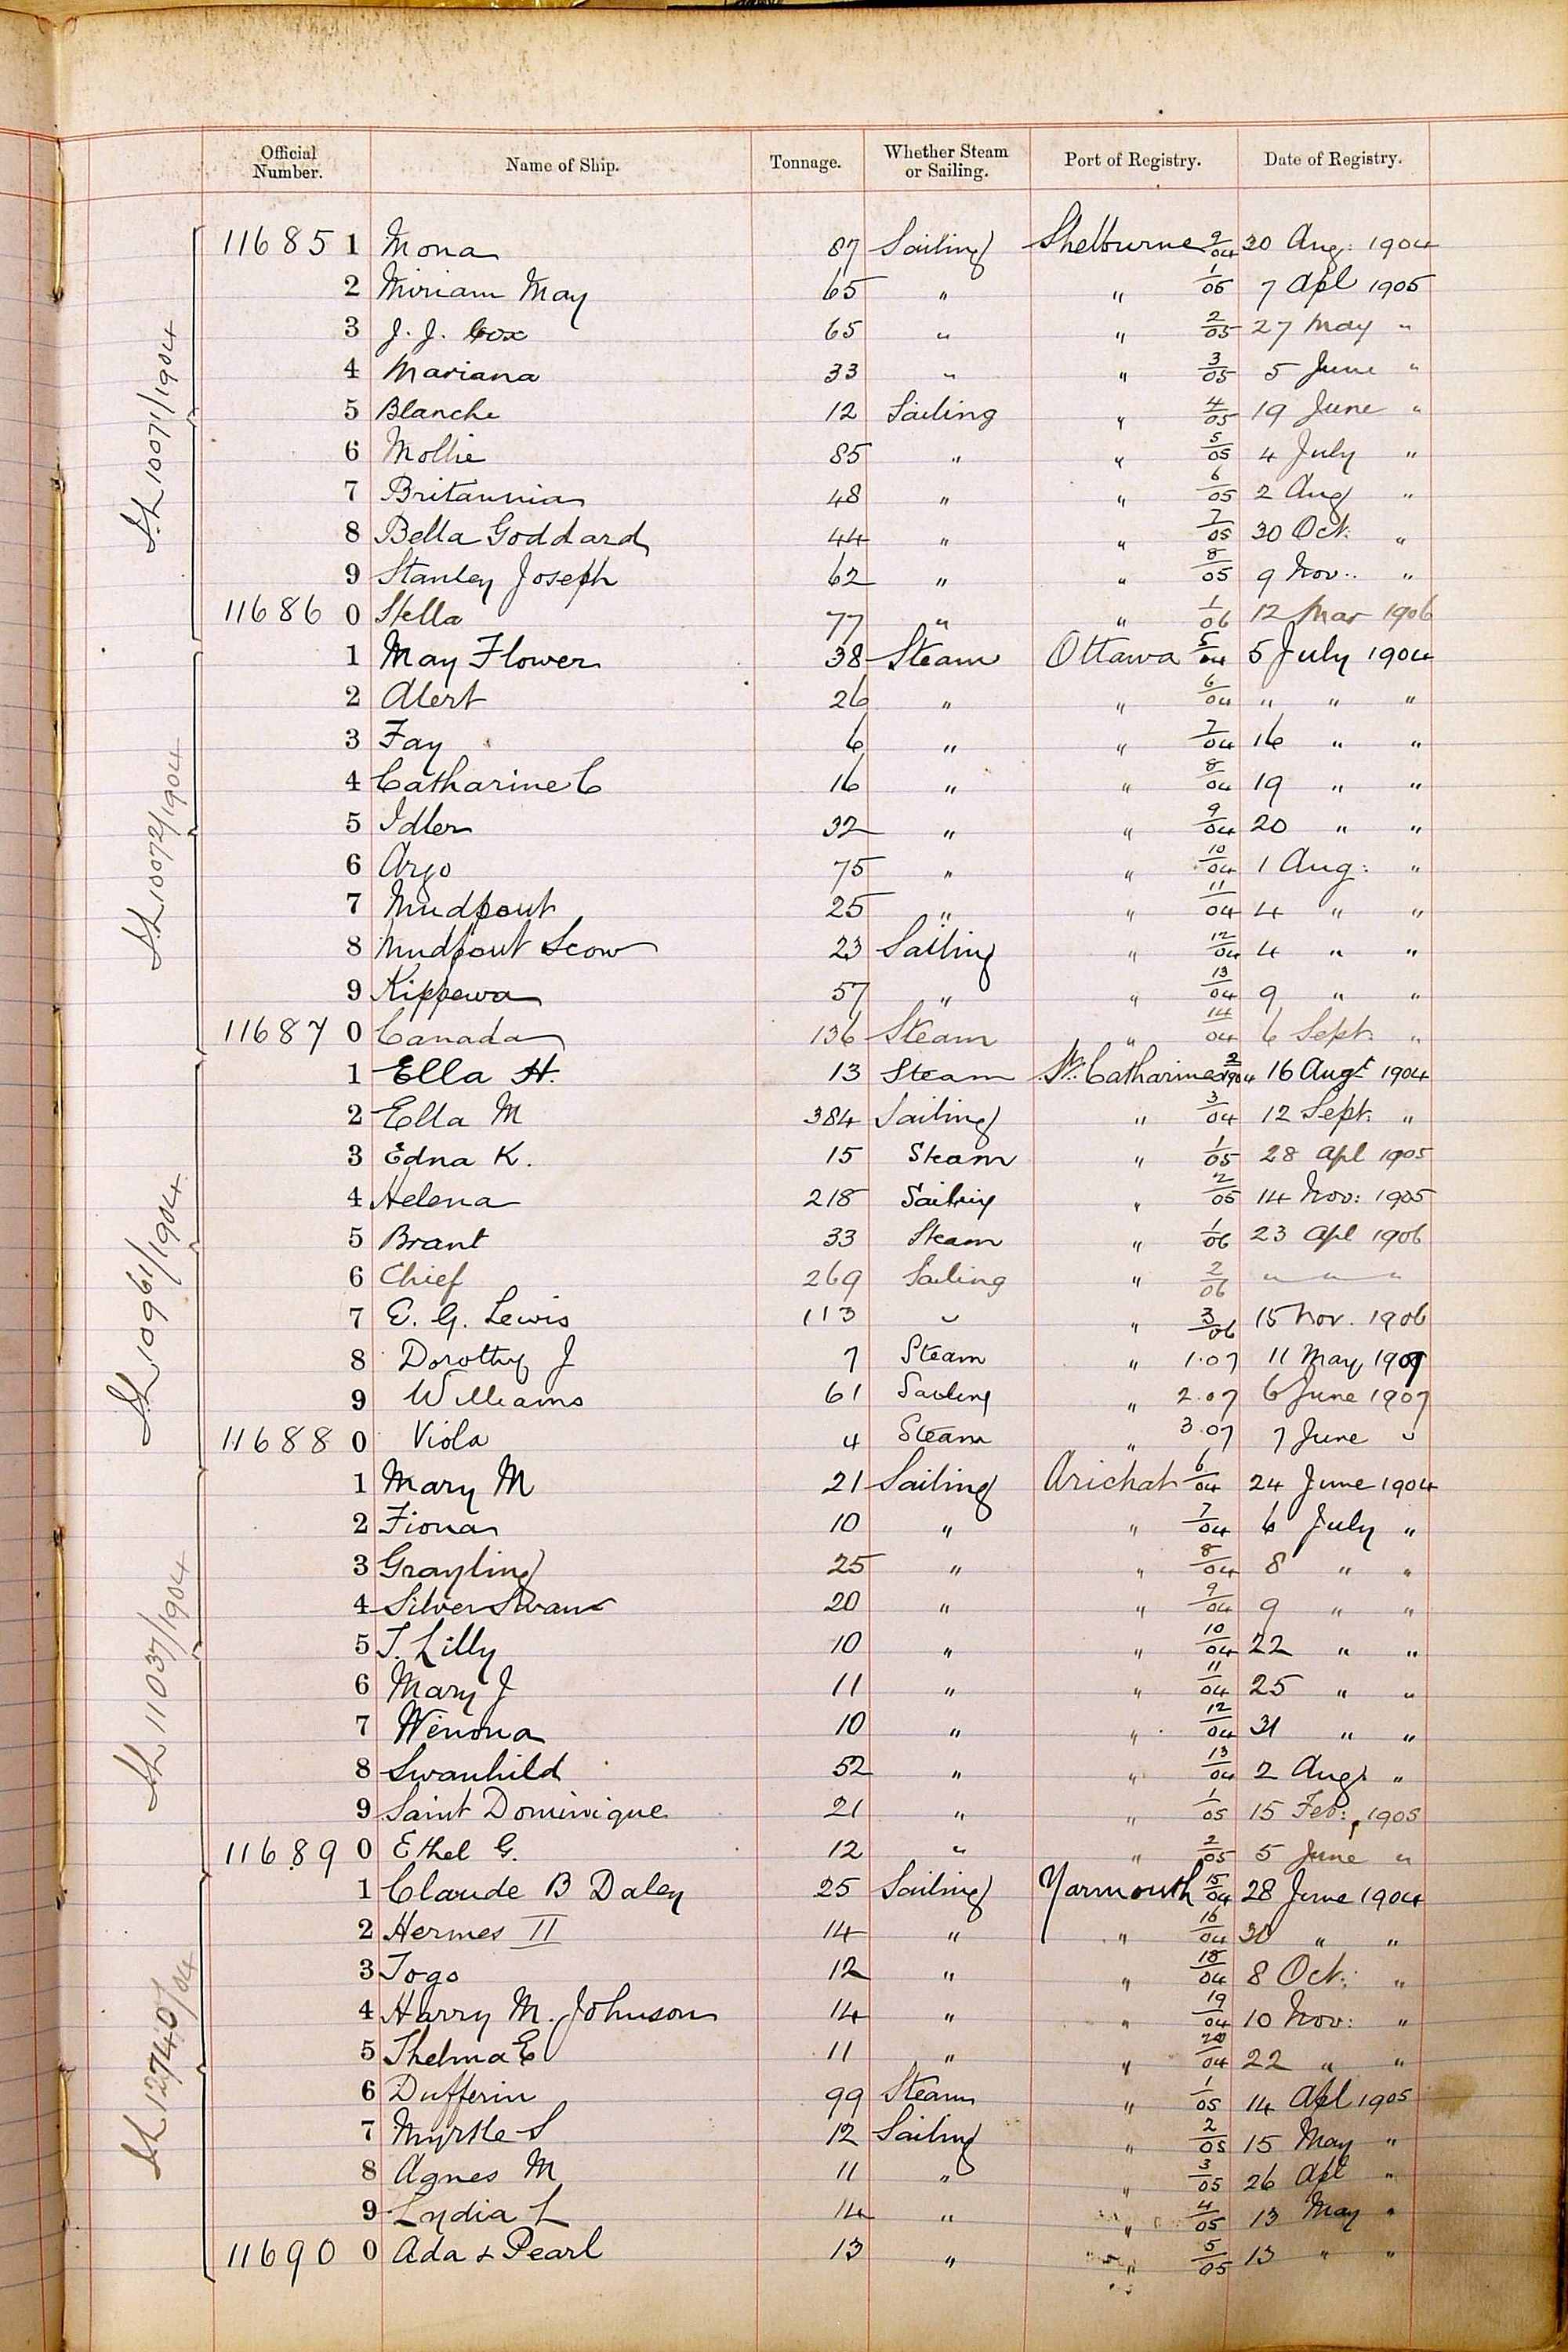 Official Number. Name of Ship. Tonnage. Whether Steam or Sailing. Port of Registry. Date of Registry.
11685 1 Mona 87 Sailing Shelburne 9/04 30 Aug: 1904
2 Miriam May 65 " " 1/05 7 Apl 1905
3 J. J. Cox 65 " " 2/05 27 May "
4 Mariana 33 " " 3/05 5 June "
5 Blanche 12 Sailing " 4/05 19 June "
6 Mollie 85 " " 5/05 4 July "
7 Britannia 48 " " 6/05 2 Aug "
8 Bella Goddard 44 " " 7/05 30 Oct: "
9 Stanley Joseph 62 " " 8/05 9 Nov.. "
11686 0 Stella 77 " " 1/06 12 Mar 1906
1 May Flower 38 Steam Ottawa 5/04 5 July 1904
2 Alert 26 " " 6/04 " " "
3 Fay 6 " " 7/04 16 " "
4 Catharine C 16 " " 8/04 19 " "
5 Idler 32 " " 9/04 20 " "
6 Argo 75 " " 10/04 1 Aug: "
7 Mudpout 25 " " 11/04 4 " "
8 Mudpout Scow 23 Sailing " 12/04 4 " "
9 Kippewa 57 " " 13/04 9 " "
11687 0 Canada 136 Steam " 14/04 6 Sept: "
1 Ella H. 13 Steam St. Catharines 2/1904 16 Augt 1904
2 Ella M 384 Sailing " 3/04 12 Sept: "
3 Edna K. 15 Steam " 1/05 28 Apl 1905
4 Helena 218 Sailing " 2/05 14 Nov: 1905
5 Brant 33 Steam " 1/06 23 Apl 1906
6 Chief 269 Sailing " 2/06 " " "
7 E. G. Lewis 113 " " 3/06 15 Nov. 1906
8 Dorothy J 7 Steam " 1.07 11 May 1907
9 Williams 61 Sailing " 2.07 6 June 1907
11688 0 Viola 4 Steam " 3.07 7 June "
1 Mary M 21 Sailing Arichat 6/04 24 June 1904
2 Fiona 10 " " 7/04 6 July "
3 Grayling 25 " " 8/04 8 " "
4 Silver Swan 20 " " 9/04 9 " "
5 T. Lilly 10 " " 10/04 22 " "
6 Mary J 11 " " 11/04 25 " "
7 Winona 10 " " 12/04 31 " "
8 Swanhild 52 " " 13/04 2 Aug: "
9 Saint Dominique 21 " " 1/05 15 Feb: 1905
11689 0 Ethel G. 12 " " 2/05 5 June "
1 Claude B Daley 25 Sailing Yarmouth 15/04 28 June 1904
2 Hermes II 14 " " 16/04 30 " "
3 Togo 12 " " 18/04 8 Oct: "
4 Harry M. Johnson 14 " " 19/04 10 Nov: "
5 Thelma E 11 " " 20/04 22 " "
6 Dufferin 99 Steam " 1/05 14 Apl 1905
7 Myrtle S 12 Sailing " 2/05 15 May "
8 Agnes M 11 " " 3/05 26 Apl "
9 Lydia L 14 " " 4/05 13 May "
11690 0 Ada & Pearl 13 " " 5/05 13 " "
10071/1904
10072/1904
10961/1904
11037/1904
12740/04